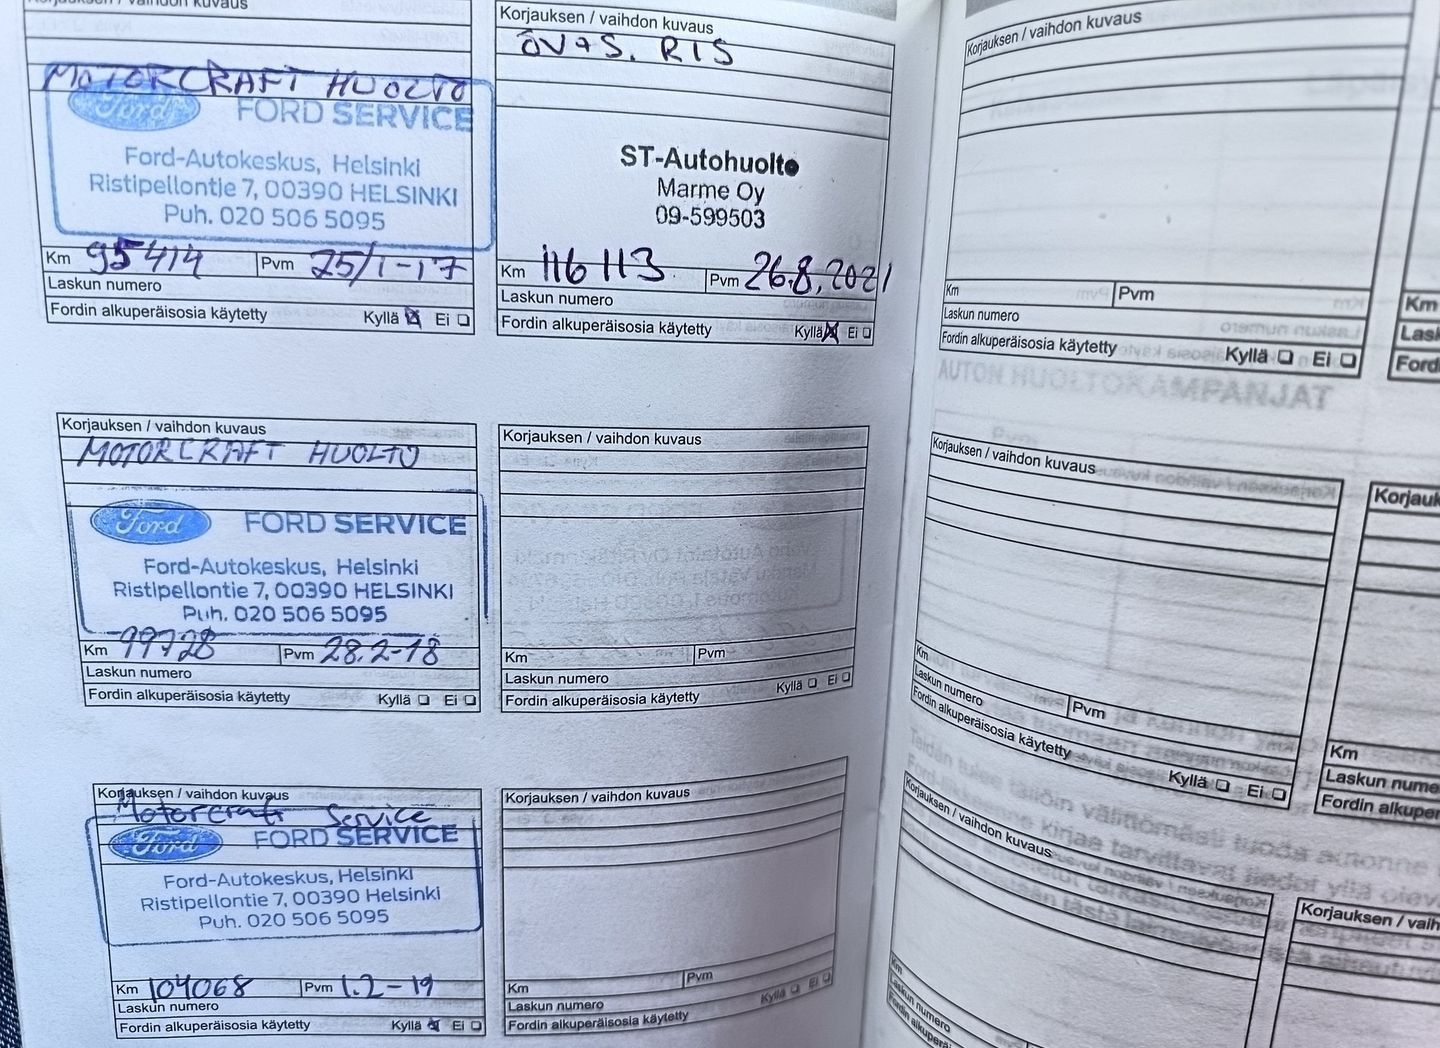 Korjauksen / vaihdon kuvaus
MOTORCRAFT HUOLTO
Ford FORD SERVICE
Ford-Autokeskus, Helsinki
Ristipellontie 7, 00390 HELSINKI
Puh. 020 506 5095
Km 95414 Pvm 25/1-17
Laskun numero
Fordin alkuperäisosia käytetty Kyllä Ei
Korjauksen / vaihdon kuvaus
MOTORCRAFT HUOLTO
Ford FORD SERVICE
Ford-Autokeskus, Helsinki
Ristipellontie 7, 00390 HELSINKI
Puh. 020 506 5095
Km 99728 Pvm 28.2-18
Laskun numero
Fordin alkuperäisosia käytetty Kyllä Ei
Korjauksen / vaihdon kuvaus
Motorcraft Service
Ford FORD SERVICE
Ford-Autokeskus, Helsinki
Ristipellontie 7, 00390 HELSINKI
Puh. 020 506 5095
Km 104068 Pvm 1.2-19
Laskun numero
Fordin alkuperäisosia käytetty Kyllä Ei
Korjauksen / vaihdon kuvaus
ÖV+S. RIS
ST-Autohuolto
Marme Oy
09-599503
Km 116113 Pvm 26.8.2021
Laskun numero
Fordin alkuperäisosia käytetty Kyllä Ei
Korjauksen / vaihdon kuvaus
Km Pvm
Laskun numero
Fordin alkuperäisosia käytetty Kyllä Ei
Korjauksen / vaihdon kuvaus
Km Pvm
Laskun numero
Fordin alkuperäisosia käytetty Kyllä Ei
Korjauksen / vaihdon kuvaus
Km Pvm
Laskun numero
Fordin alkuperäisosia käytetty Kyllä Ei
AUTON HUOLTOKAMPANJAT
Korjauksen / vaihdon kuvaus
Km Pvm
Laskun numero
Fordin alkuperäisosia käytetty Kyllä Ei
Korjauksen / vaihdon kuvaus
Km
Laskun numero
Km
Lask
Ford
Korjauk
Km
Laskun nume
Fordin alkuper
Korjauksen / vaih